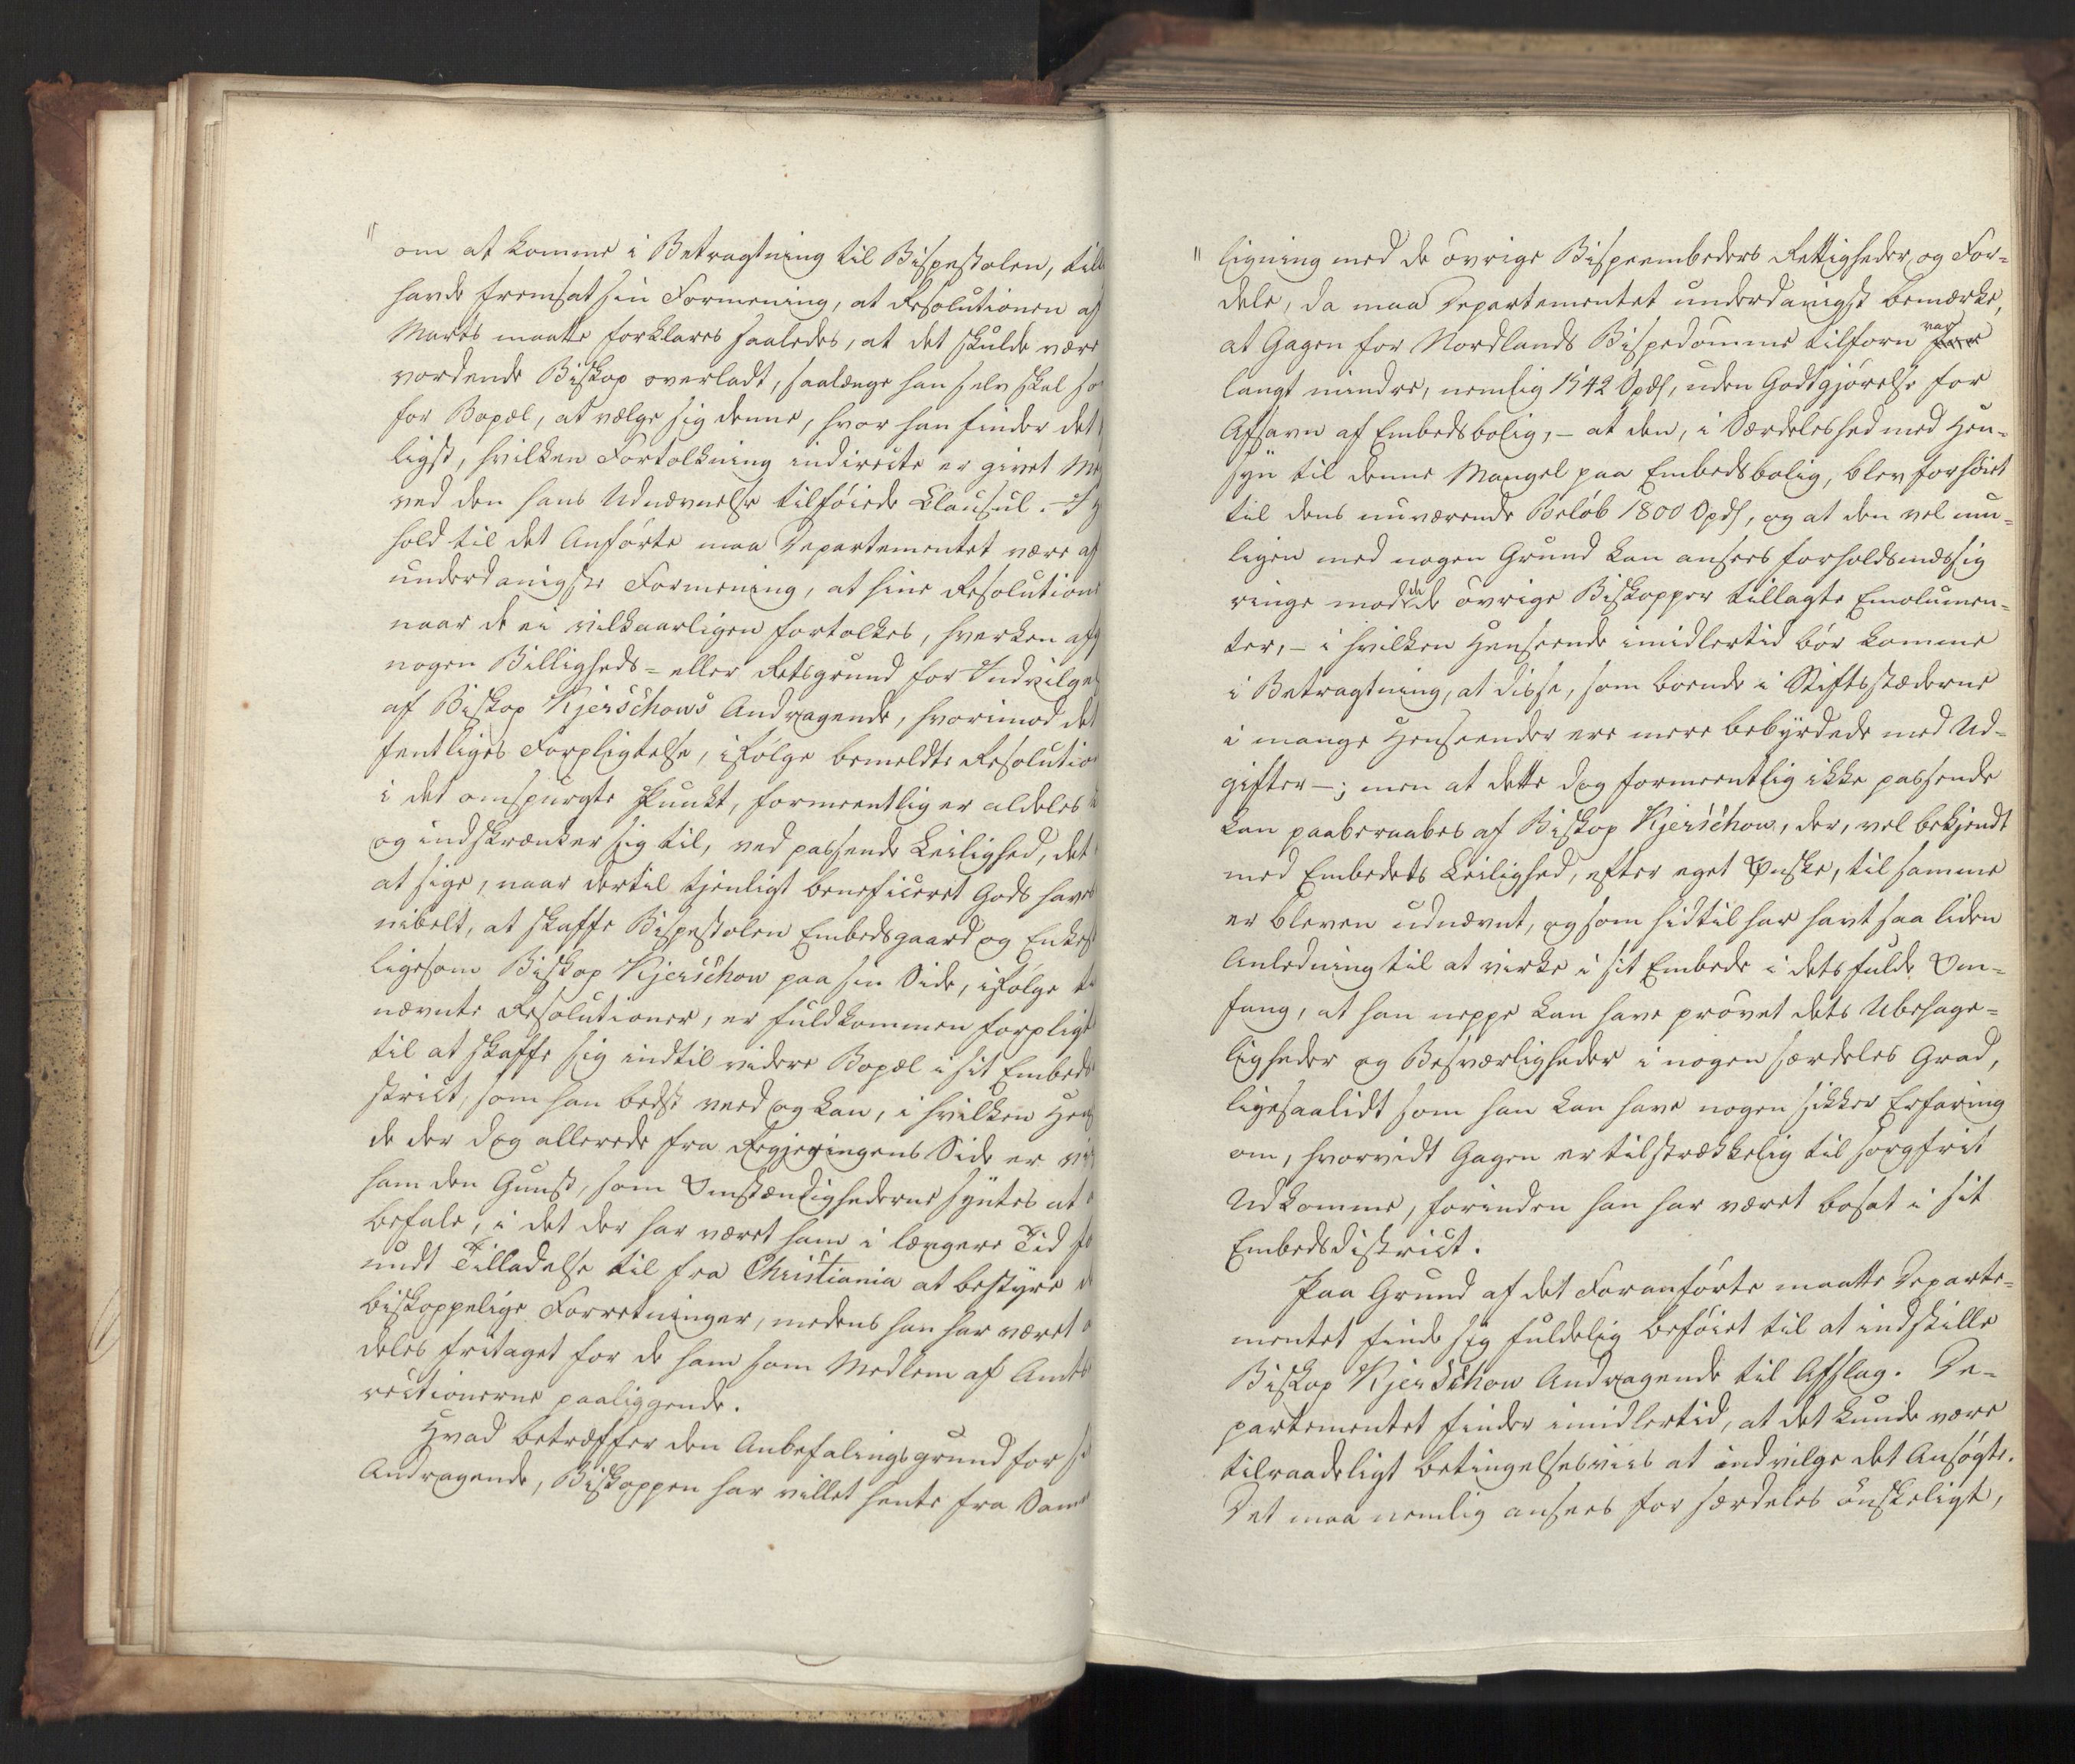 " om at komme i Betragtning til Bispestolen, till
havde fremsat sin Formening, at Resolutionen af
Marts maatte forklares saaledes, at det skulde være
vordende Biskop overladt, saalænge han selv skal so
for Bopæl, at vælge sig denne, hvor han finder det
ligst, hvilken Fortolkning indirecte er givet
ved den hans Udnævnelse tilføiede Clausul. – I
hold til det Anførte maa Departementet være af
underdanigste Formening, at hine Resolutione
naar de ei vilkaarligen fortolkes, hverken afg
nogen Billigheds- eller Retsgrund for Indvilgel
af Biskop Kjerschows Andragende, hvorimod det
fentliges Forpligtelse, ifølge bemeldte Resolutio
i det omspurgte Punkt, formeentlig er aldeles
og indskrænker sig til, ved passende Leilighed, det
at sige, naar dertil tjenligt beneficeret Gods haves
nibelt, at skaffe Bispestolen Embedsgaard og Enkes
ligesom Biskop Kjerschow paa sin Side, ifølge
nævnte Resolutioner, er fuldkommen forpligt
til at skaffe sig indtil videre Bopæl i sit Embeds
strict, som han bedst veed og kan, i hvilken Hens
de der dog allerede fra Regjeringens Side er vi
ham den Gunst, som Omstændighederne syntes at
befale, i det der har været ham i længere Tid fo
undt Tilladelse til fra Christiania at bestyre
biskoppelige Forretninger, medens han har været
deles fritaget for de ham som Medlem af Amts
rectionerne paaliggende.
Hvad betræffer den Anbefalingsgrund for si
Andragende, Biskoppen har villet hente fra Sam
" ligning med de øvrige Bispeembeders Rettigheder og For-
dele, da maa Departementet underdanigst bemærke,
at Gagen for Nordlands Bispedømme tilforn var
langt mindre, nemlig 1542 Spds, uden Godtgjørelse for
Afsavn af Embedsbolig, – at den, i Særdeleshed med Hen-
syn til denne Mangel paa Embedsbolig, blev forhøiet
til dens nuværende Beløb 1800 Spds, og at den vel nu-
ligen med nogen Grund kan ansees forholdsmæssig
ringe mod de de øvrige Biskopper tillagte Emolumen-
ter, – i hvilken Henseende imidlertid bør komme
i Betragtning, at disse, som boende i Stiftsstæderne
i mange Henseender ere mere bebyrdede med Ud-
gifter –; men at dette dog formeentlig ikke passende
kan paaberaabes af Biskop Kjerschow, der, vel bekjendt
med Embedets Leilighed, efter eget Ønske, til samme
er bleven udnævnt, og som hidtil har havt saa liden
Anledning til at virke i sit Embede i dets fulde Om-
fang, at han neppe kan have prøvet dets Ubehage-
ligheder og Besværligheder i nogen særdeles Grad,
ligesaalidt som han kan have nogen sikker Erfaring
om, hvorvidt Gagen er tilstrækkelig til sorgfrit
Udkomme, forinden han har været bosat i sit
Embedsdistrict.
Paa Grund af det Foranførte maatte Departe-
mentet finde sig fuldelig beføiet til at indstille
Biskop Kjerschow Andragende til Afslag. De-
partementet finder imidlertid, at det kunde være
tilraadeligt betingelsesviis at indvilge det Ansøgte.
Det maa nemlig ansees for særdeles ønskeligt,